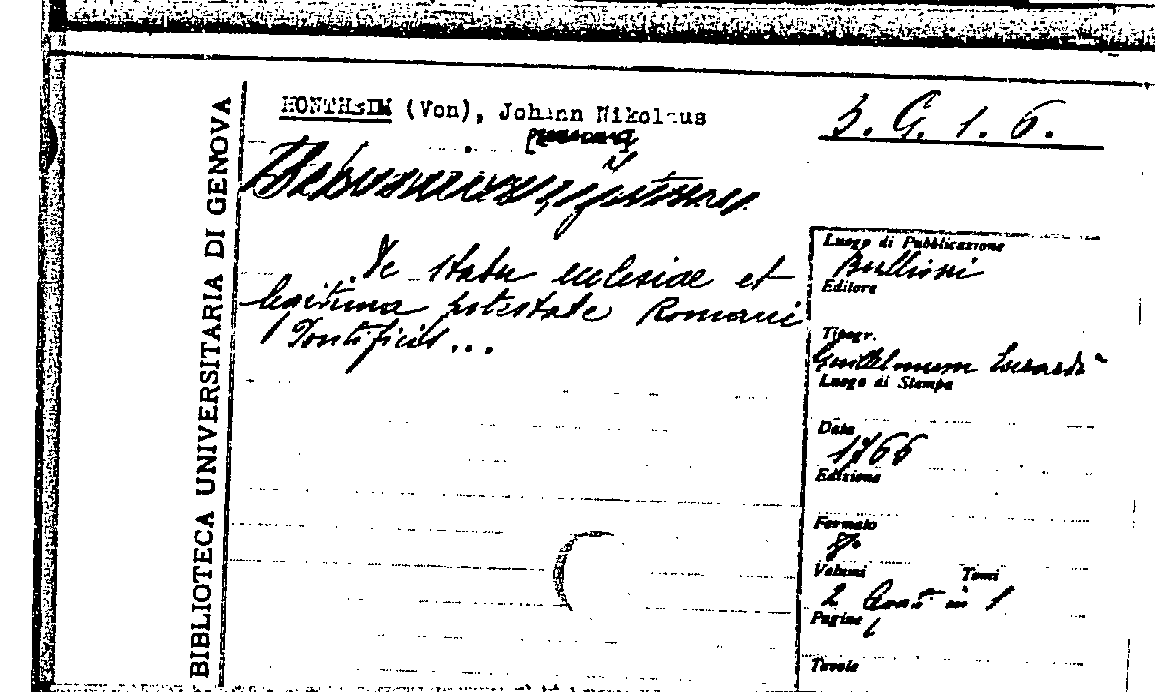 BIBLIOTECA UNIVERSITARIA DI GENOVA
HONTHEIM (Von), Johann Nikolaus
3. G. 1. 6.
De statu ecclesiae et
legitima potestate Romani
Pontificis...
Luogo di Pubblicazione
Bullioni
Editore
Tipogr.
Guillelmum
Luogo di Stampa
Data
1766
Edizione
Formato
8°
Volumi Tomi
2 in 1
Pagine
Tavole